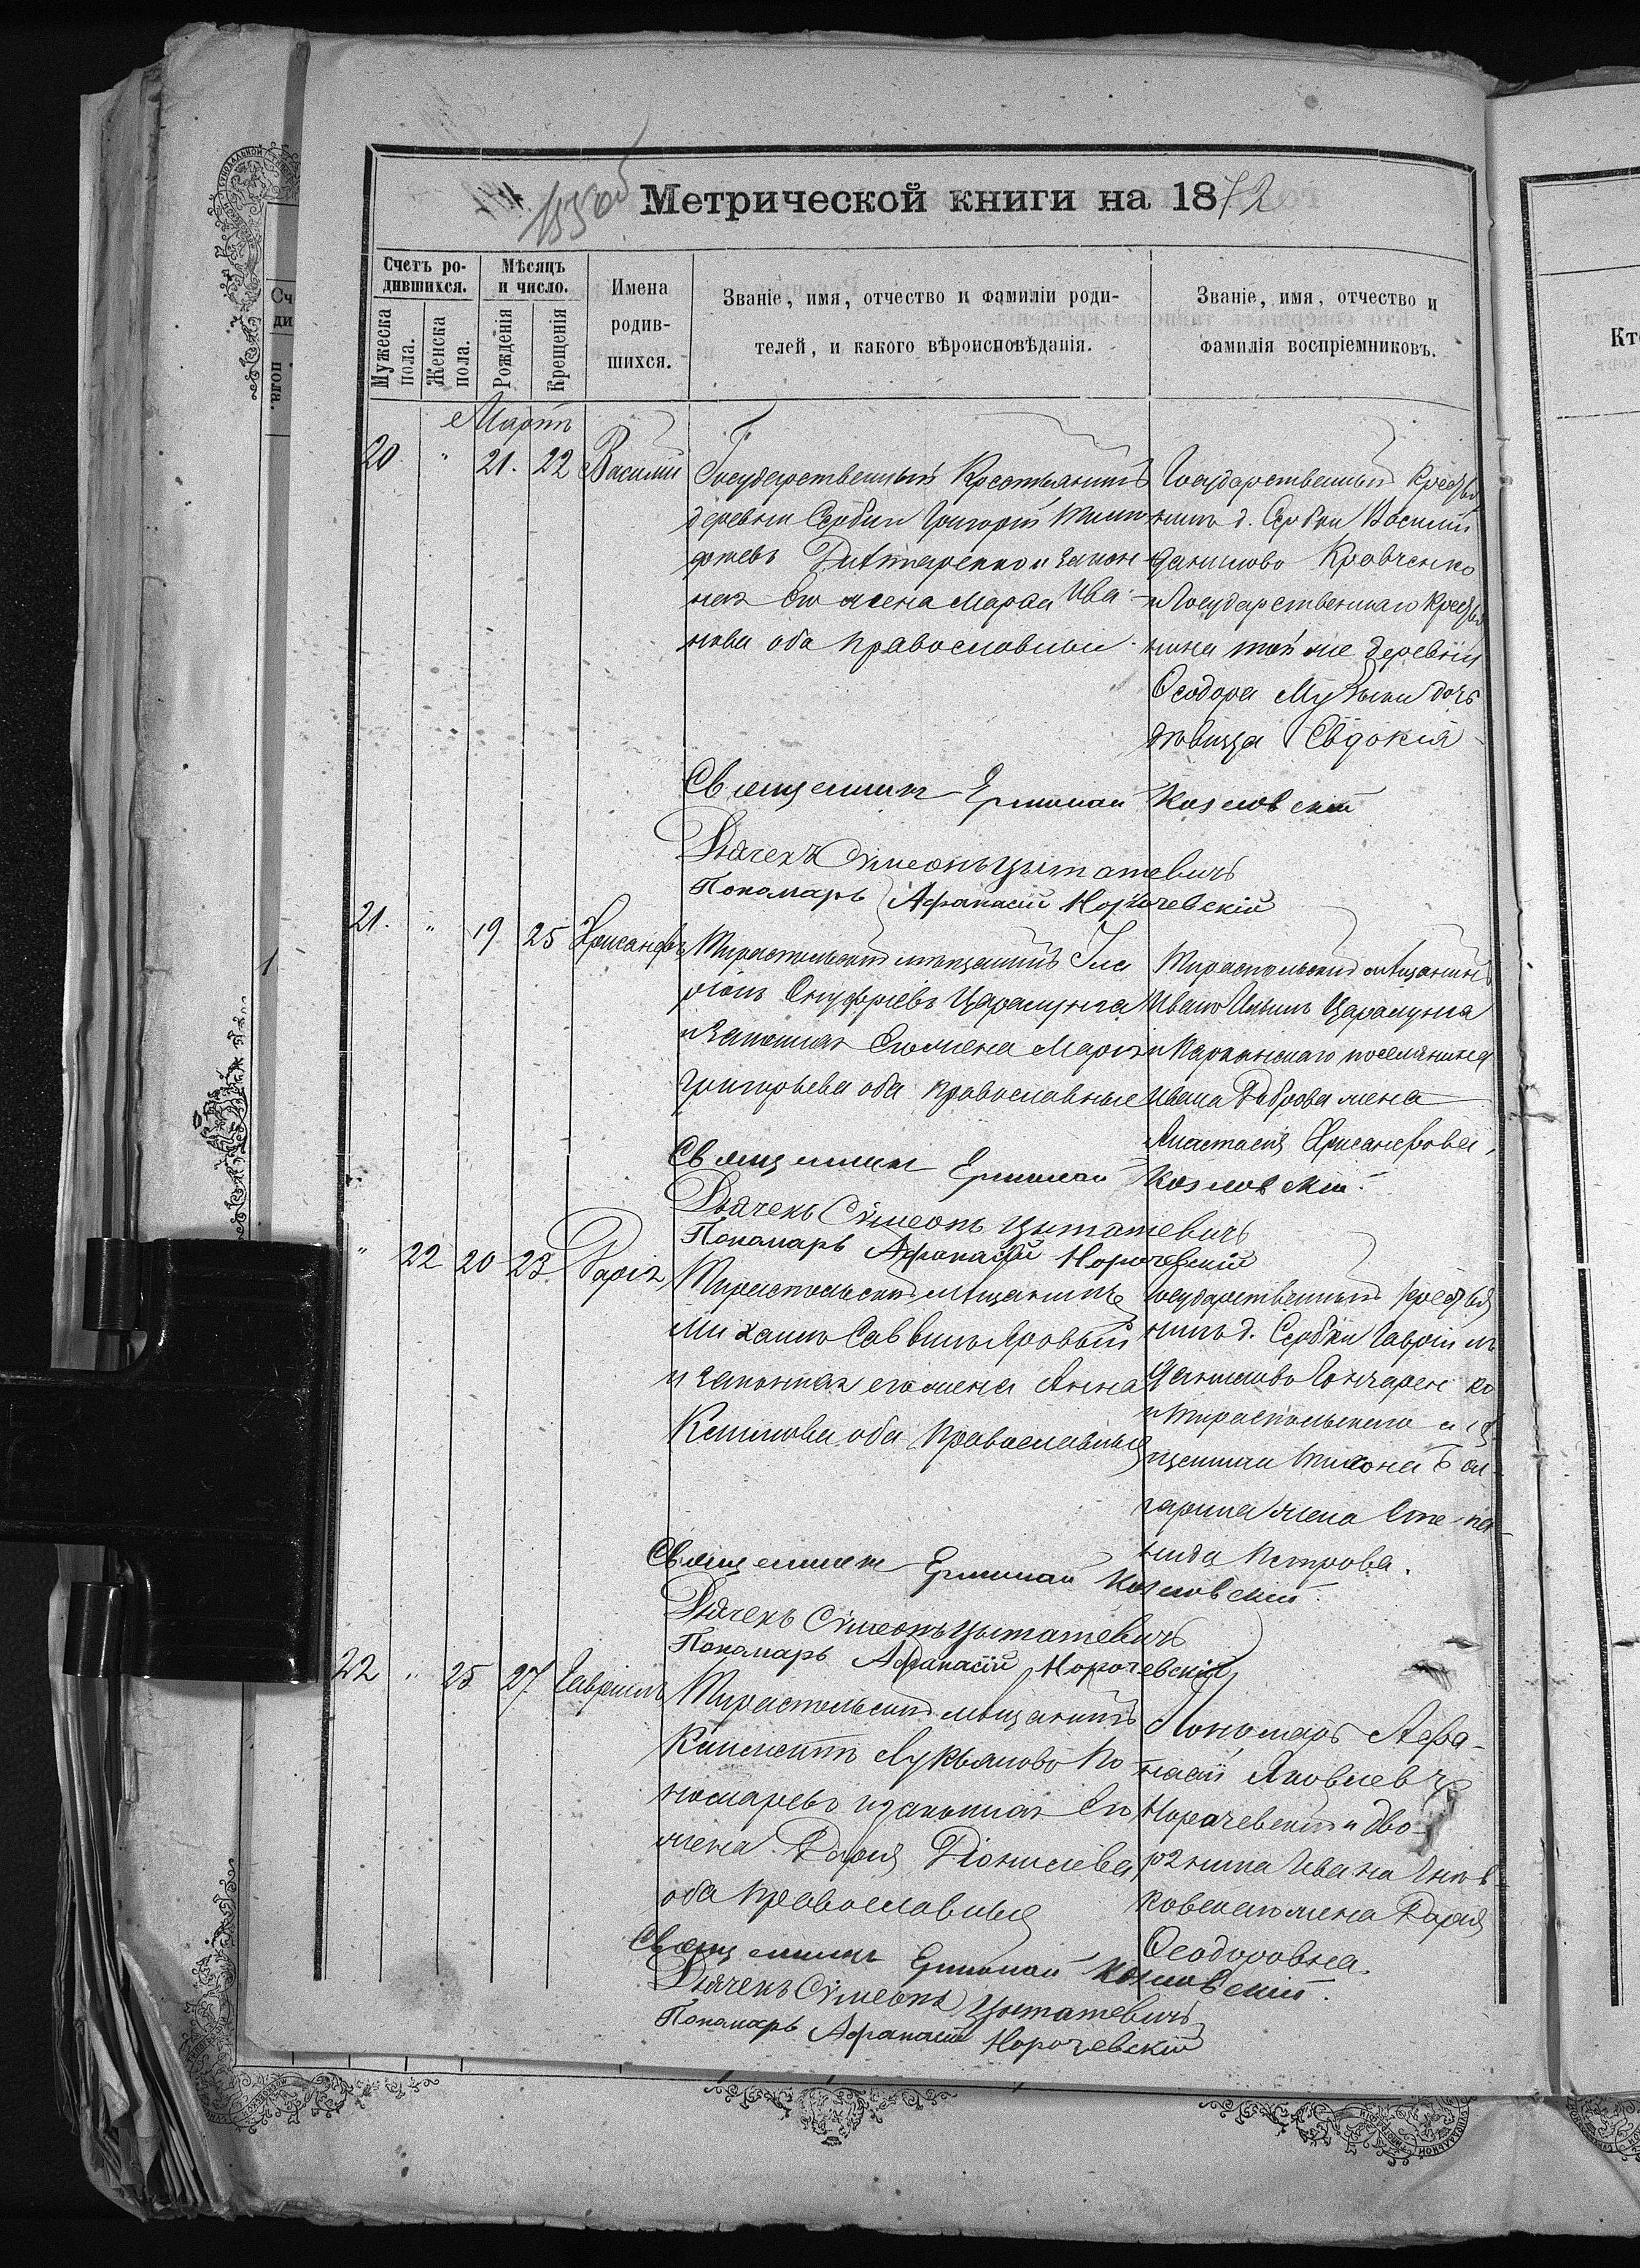 155об
Метрической книги на 1872
Счетъ ро-
дившихся.
Мужеска
пола.
Женска
пола.
Мѣсяцъ
и число.
Рожденія
Крещенія
Имена
родив-
шихся.
Званіе, имя, отчество и фамиліи роди-
телей, и какого вѣроисповѣданія.
Званіе, имя, отчество и
фамилія воспріемниковъ.
Мартъ
20 " 21. 22 Василій
Государственный Крестьянинъ
деревни Сербки Григорій Тимо
феевъ и закон
ная Его жена Марфа Ива
нова оба православныи
Государственный Крестья
нинъ д. Сербки Василій
Даниловъ Кравченко
и Государственнаго Крестья
нина той же деревни
Ѳеодора Музыки дочь
дѣвица Евдокія
Священникъ Ермолай Козловскій
Дьячекъ Сѵмеонъ Цытатевичъ
Пономарь Афанасій Норочевскій
21. " 19 25 Хрисанфъ
Тираспольскій мѣщанинъ
Онуфріевъ Царалунга
и законная Его жена Марія
Григорьева оба православные
Тираспольскій мѣщанинъ
Иванъ Ильинъ Царалунга
и поселянина
Ивана жена
Анастасія Хрисанфова
Священникъ Ермолай Козловскій
Дьячекъ Сѵмеонъ Цытатевичъ
Пономарь Афанасій Норочевскій
" 22 20 23 Дарія
Тираспольскій мѣщанинъ
Михаилъ Саввинъ Яровый
и законная его жена Анна
Климова оба Православныя
Государственный крестья
нинъ д. Сербки Гавріилъ
Даниловъ Гончаренко
и Тираспольскаго мѣ
щанина Тихона Бол-
гарина жена Степа-
нида Петрова.
Священникъ Ермолай Козловскій
Дьячекъ Сѵмеонъ Цытатевичъ
Пономарь Афанасій Норочевскій
22 " 25 27 Гавріилъ
Тираспольскій мѣщанинъ
Климентъ Лукьяновъ По
номаревъ и законная Его
жена Дарія Діонисіева
оба православныя
Пономарь Афа-
насій Яковлевъ
Норочевскій и дво-
рянина Ивана
жена Дарія
Ѳеодоровна.
Священникъ Ермолай Козловскій
Дьячекъ Сѵмеонъ Цытатевичъ
Пономарь Афанасій Норочевскій